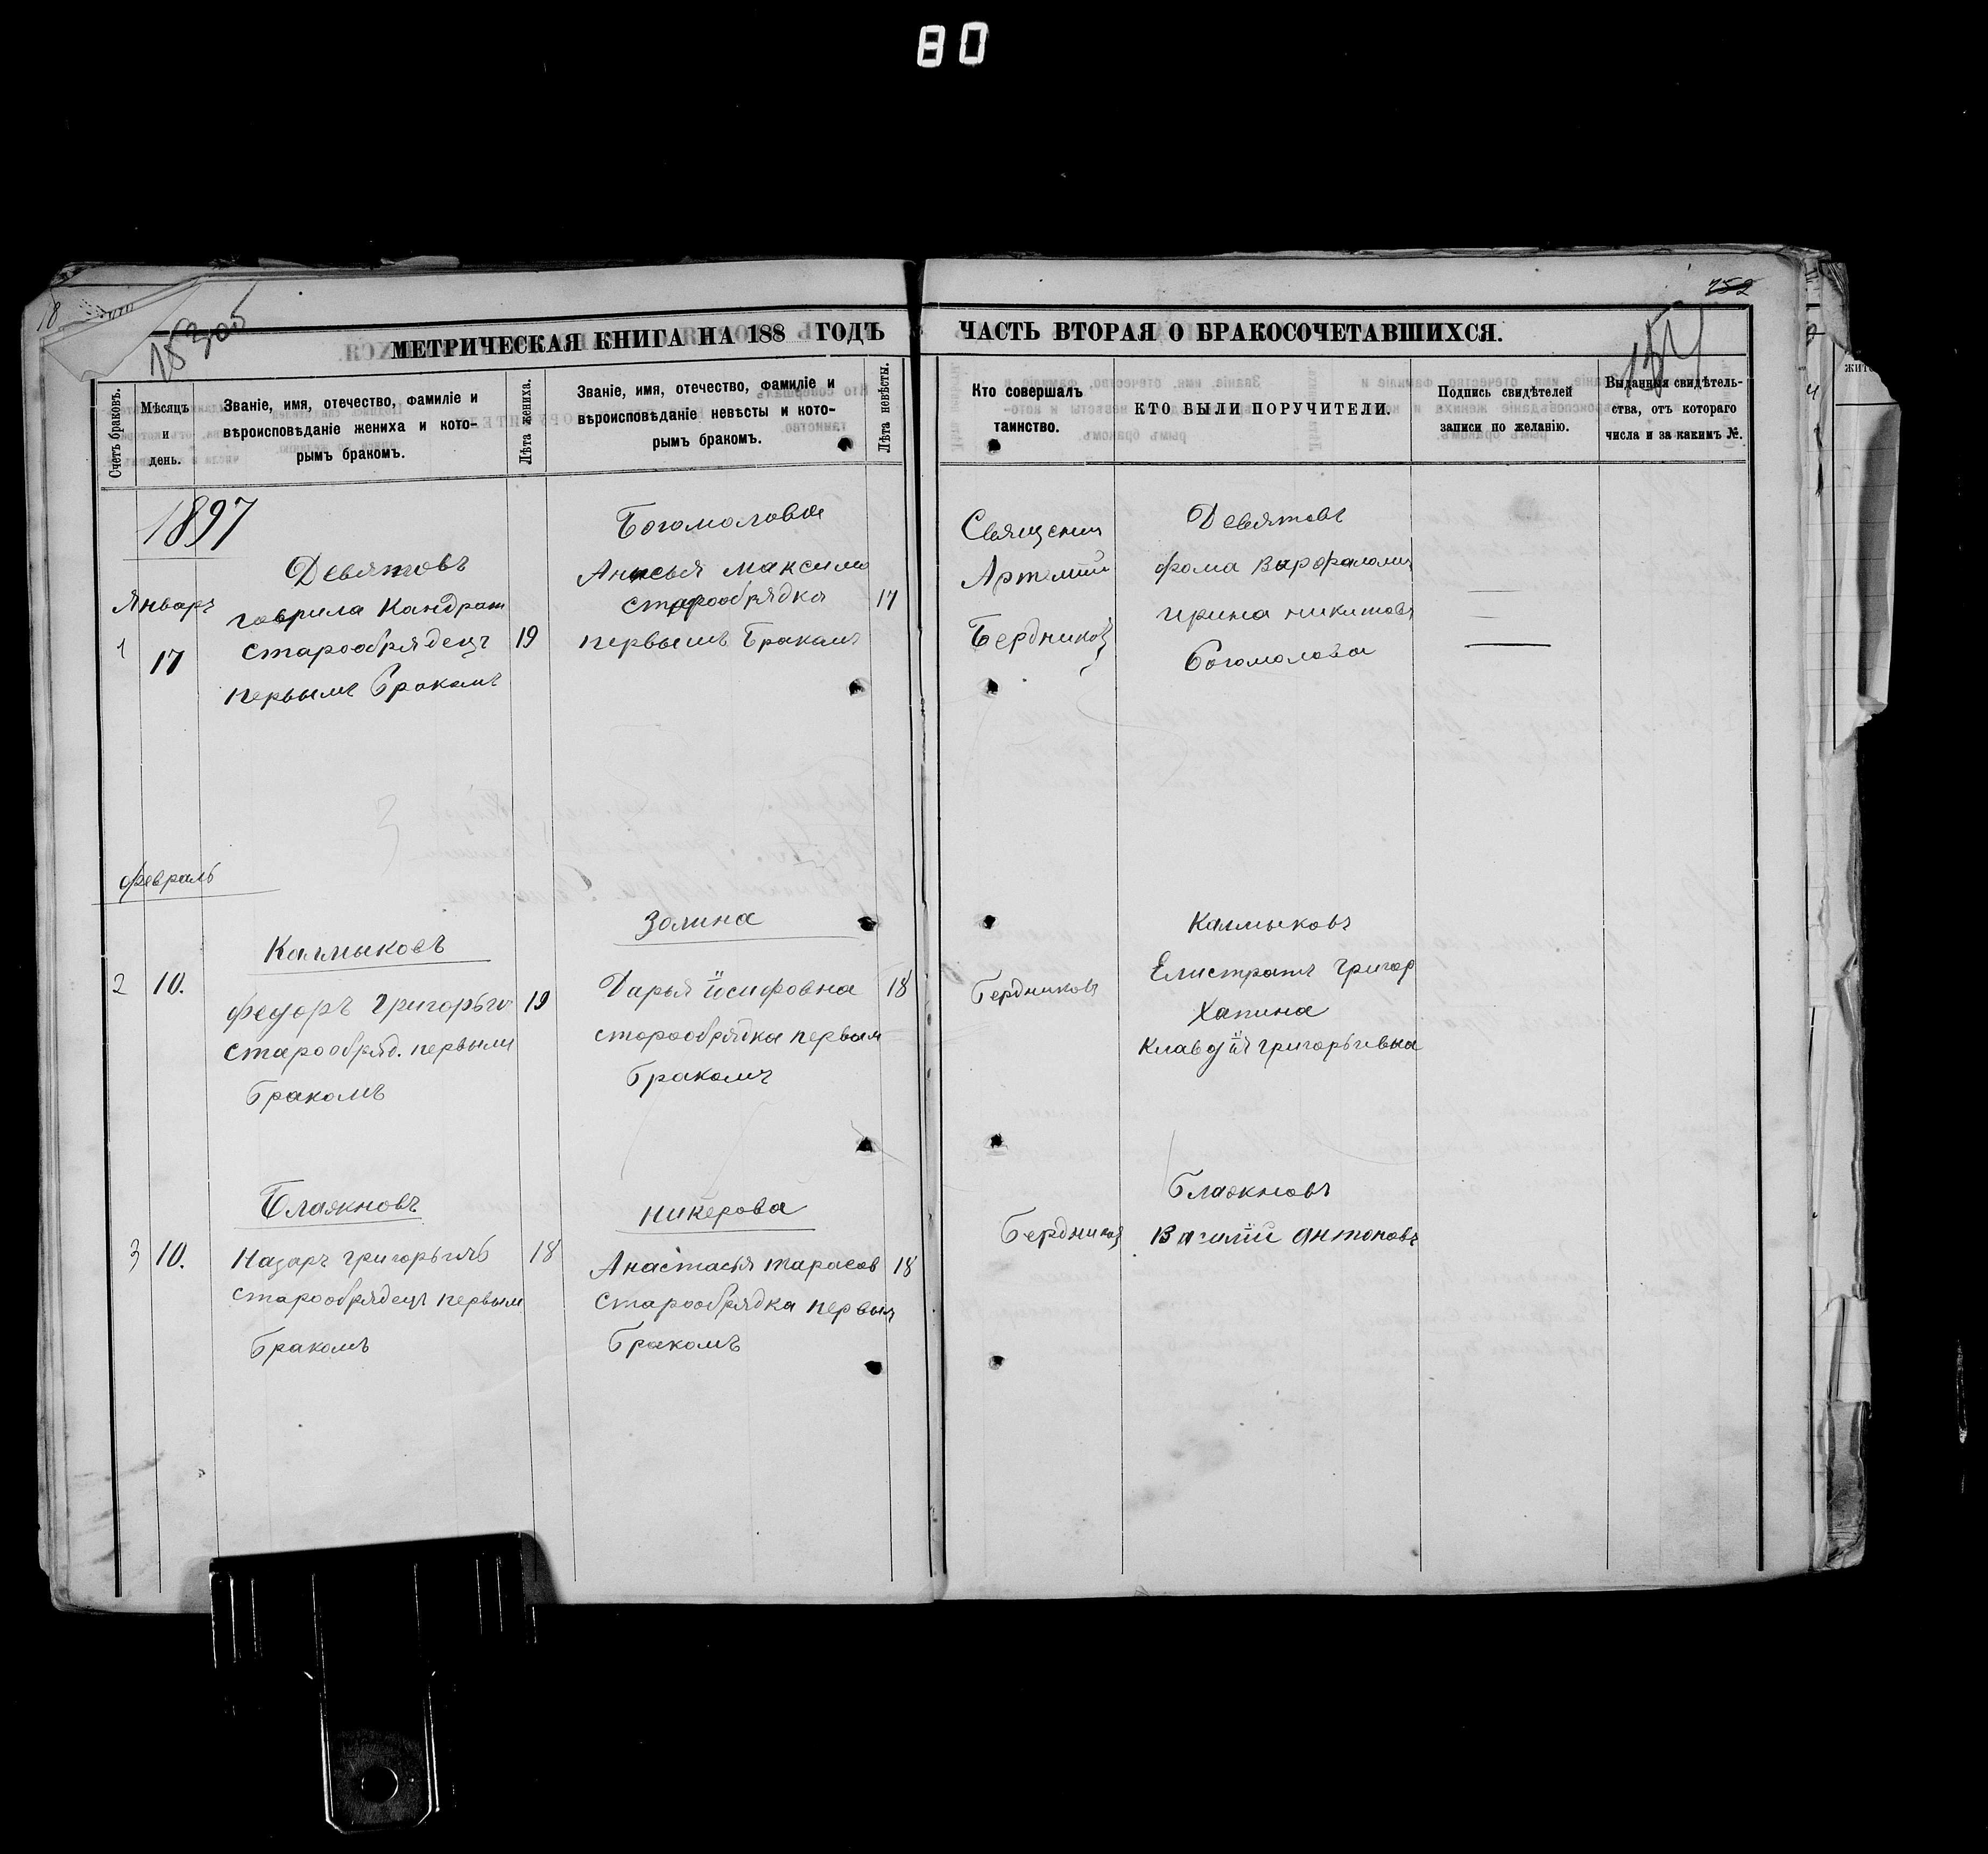 80
18
152
15300б
154
МЕТРИЧЕСКАЯ КНИГА НА 188 ГОДЪ
ЧАСТЬ ВТОРАЯ О БРАКОСОЧЕТАВШИХСЯ.
Счетъ браковъ.
Мѣсяцъ
и
день.
Званіе, имя, отечество, фамиліе и
вѣроисповѣданіе жениха и кото-
рымъ бракомъ.
Лѣта жениха.
Званіе, имя, отечество, фамиліе и
вѣроисповѣданіе невѣсты и кото-
рымъ бракомъ.
Лѣта невѣсты.
Кто совершалъ
таинство.
КТО БЫЛИ ПОРУЧИТЕЛИ.
Подпись свидѣтелей
записи по желанію.
Выданныя свидѣтель-
ства, отъ котораго
числа и за какимъ №.
1897
Январь
1
17
Девятовъ
гаврила Кандрат
старообрядецъ
первымъ бракамъ
19
Богомолова
Анисья Максимо
старообрядка
первымъ Бракамъ
17
Священи
Артемий
Бердников
Девятовъ
фома Варфаломи
ирина никитов
богомолова
февраль
2
10.
Калмыковъ
федоръ григорьев
старообряд. первым
бракомъ
19
Золина
Дарья иосифовна
старообрядка первым
бракомъ
18
Бердников
Калмыковъ
Елистратъ григор
Хапина
Клавдия григорьевна
3
10.
Блаженовъ
Назаръ григорьичъ
старообрядецъ первым
бракомъ
18
никерова
Анастасья тарасов
старообрядка первым
бракомъ
18
Бердников
блаженовъ
Василий антоновъ